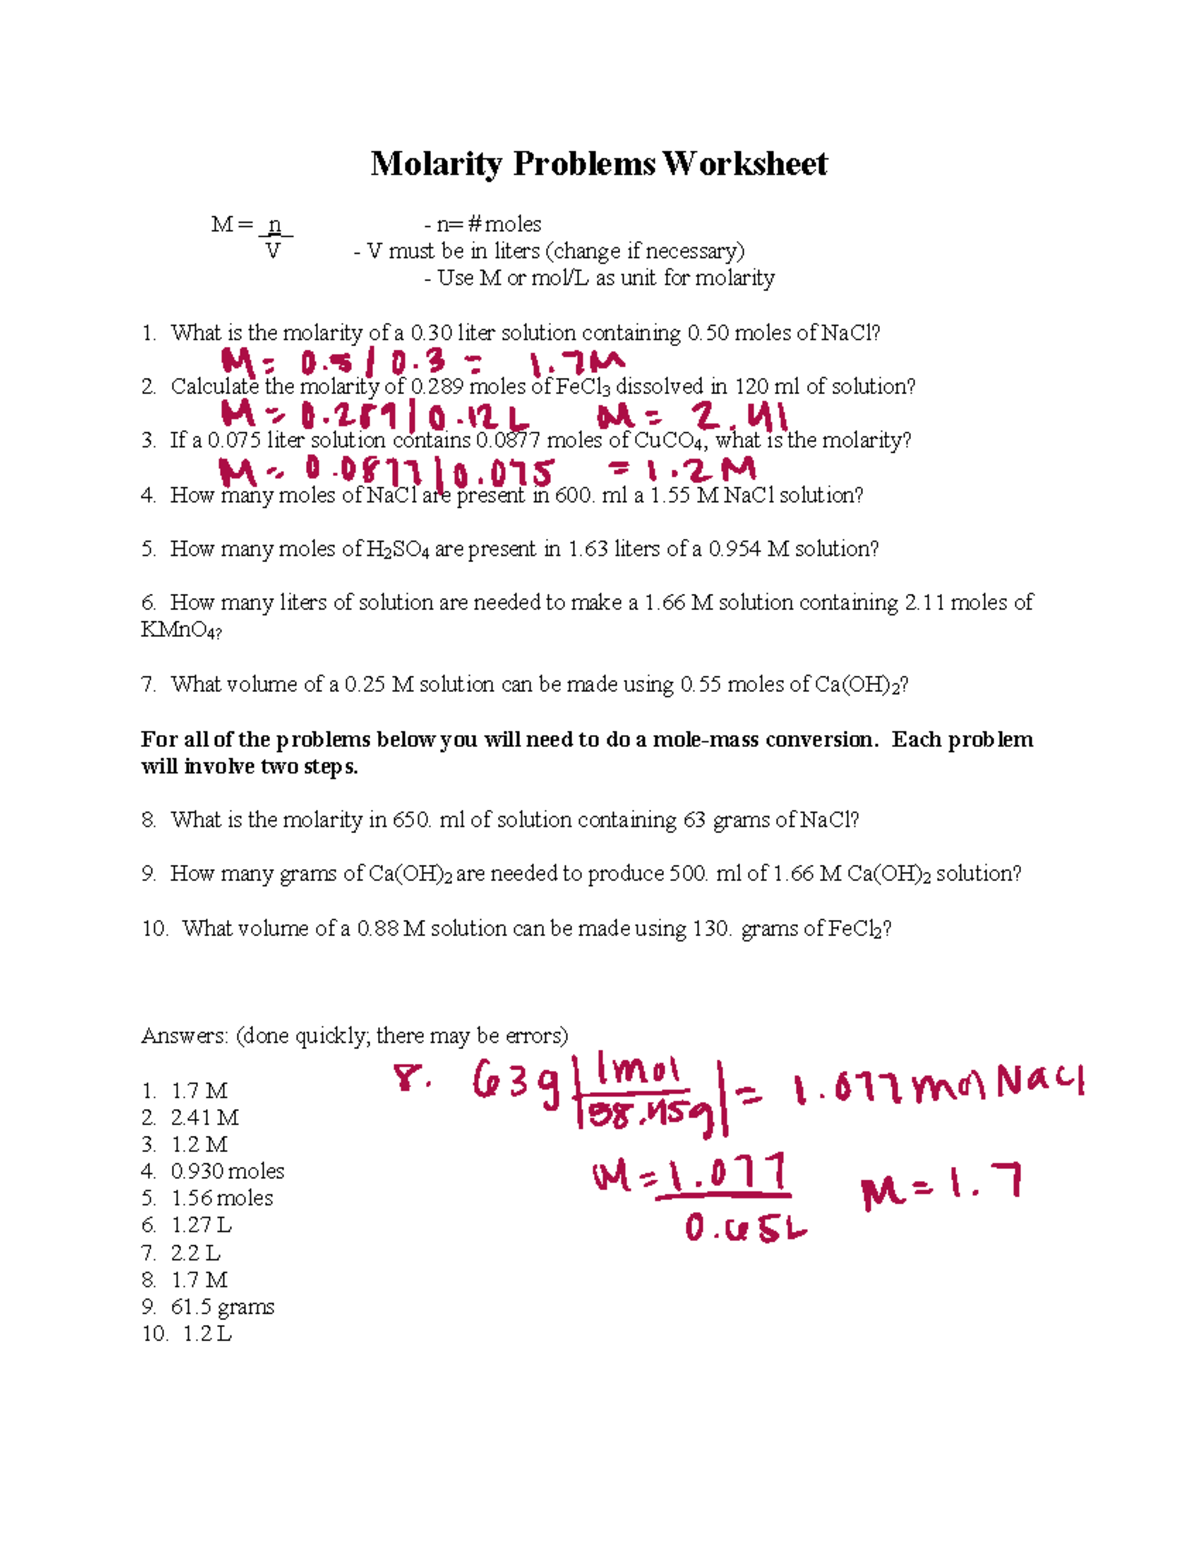 Molarity Problems Worksheet
M = n - n= # moles
V - V must be in liters (change if necessary)
- Use M or mol/L as unit for molarity
1. What is the molarity of a 0.30 liter solution containing 0.50 moles of NaCl?
M= 0.5 / 0.3 = 1.7M
2. Calculate the molarity of 0.289 moles of FeCl3 dissolved in 120 ml of solution?
M= 0.289 / 0.12 L M = 2.41
3. If a 0.075 liter solution contains 0.0877 moles of CuCO4, what is the molarity?
M= 0.0877 / 0.075 = 1.2 M
4. How many moles of NaCl are present in 600. ml a 1.55 M NaCl solution?
5. How many moles of H2SO4 are present in 1.63 liters of a 0.954 M solution?
6. How many liters of solution are needed to make a 1.66 M solution containing 2.11 moles of
KMnO4?
7. What volume of a 0.25 M solution can be made using 0.55 moles of Ca(OH)2?
For all of the problems below you will need to do a mole-mass conversion. Each problem
will involve two steps.
8. What is the molarity in 650. ml of solution containing 63 grams of NaCl?
9. How many grams of Ca(OH)2 are needed to produce 500. ml of 1.66 M Ca(OH)2 solution?
10. What volume of a 0.88 M solution can be made using 130. grams of FeCl2?
Answers: (done quickly; there may be errors)
8. 63g | 1mol | = 1.077 mol NaCl
58.45g
1. 1.7 M
2. 2.41 M
3. 1.2 M
4. 0.930 moles
M = 1.077 M = 1.7
0.65L
5. 1.56 moles
6. 1.27 L
7. 2.2 L
8. 1.7 M
9. 61.5 grams
10. 1.2 L